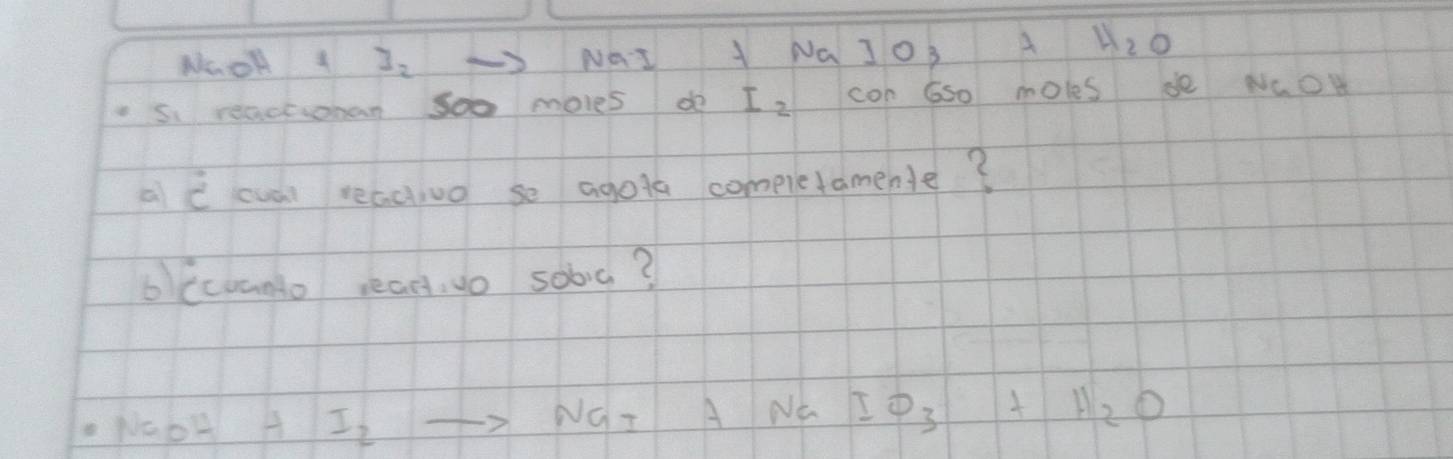 NaOH + I₂ → NaI + NaIO₃ + H₂O
• Si reaccionan 500 moles de I₂ con 650 moles de NaOH
a) ¿cual reactivo se agota completamente?
b) ¿cuanto reactivo sobra?
• NaOH + I₂ → NaI + NaIO₃ + H₂O